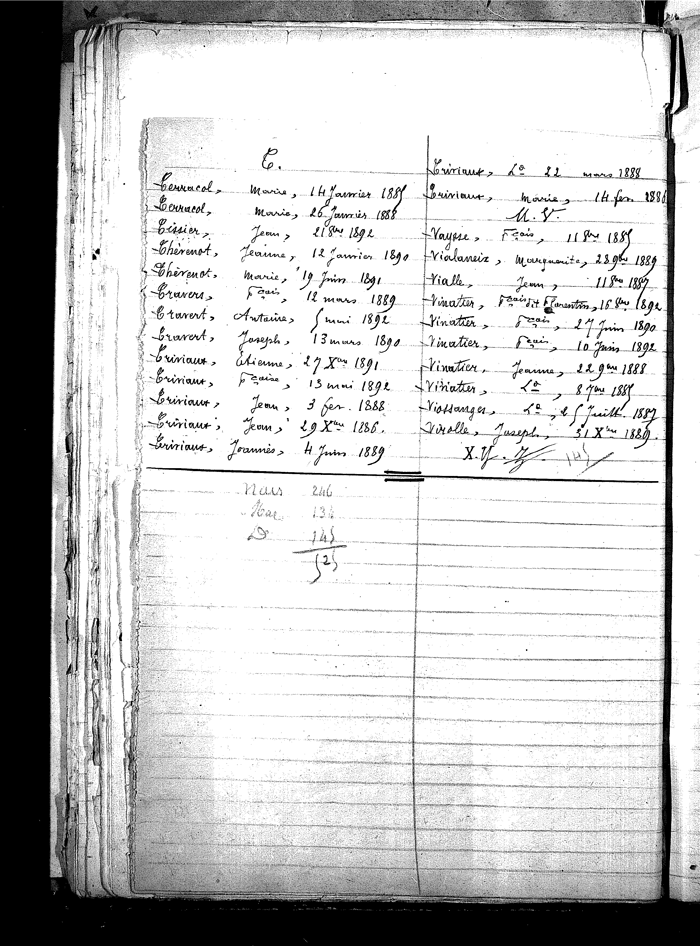 T.
Terracol, Marie, 14 Janvier 1885
Terracol, Marie, 26 Janvier 1888
Tissier, Jean, 2 8bre 1892
Thévenot, Jeanne, 12 Janvier 1890
Thévenot, Marie, 19 Juin 1891
Travers, Fçois, 12 mars 1889
Travert, Antoine, 5 mai 1892
Travert, Joseph, 13 mars 1890
Triviaux, Etienne, 27 Xbre 1891
Triviaux, Fçoise, 13 mai 1892
Triviaux, Jean, 3 fev. 1888
Triviaux, Jean, 29 Xbre 1886.
Triviaux, Joannès, 4 Juin 1889
Triviaux, do 22 mars 1888
Triviaux, Marie, 14 fev 2886
U. V
Vaysse, Fçois, 11 8bre 1885
Vialaneix, Marguerite, 28 9bre 1889
Vialle, Jean, 11 8bre 1887
Vinatier, Fçois dit Florentin, 16 8bre 1892
Vinatier, Fçois, 27 Juin 1890
Vinatier, Fçois, 10 Juin 1892
Vinatier, Jeanne, 22 9bre 1888
Vinatier, do, 8 7bre 1885
Viossanges, do, 25 Juill. 1887
Virolle, Joseph, 31 Xbre 1889.
X. Y. Z. 145
Nais 246
Mar 134
D 145
525